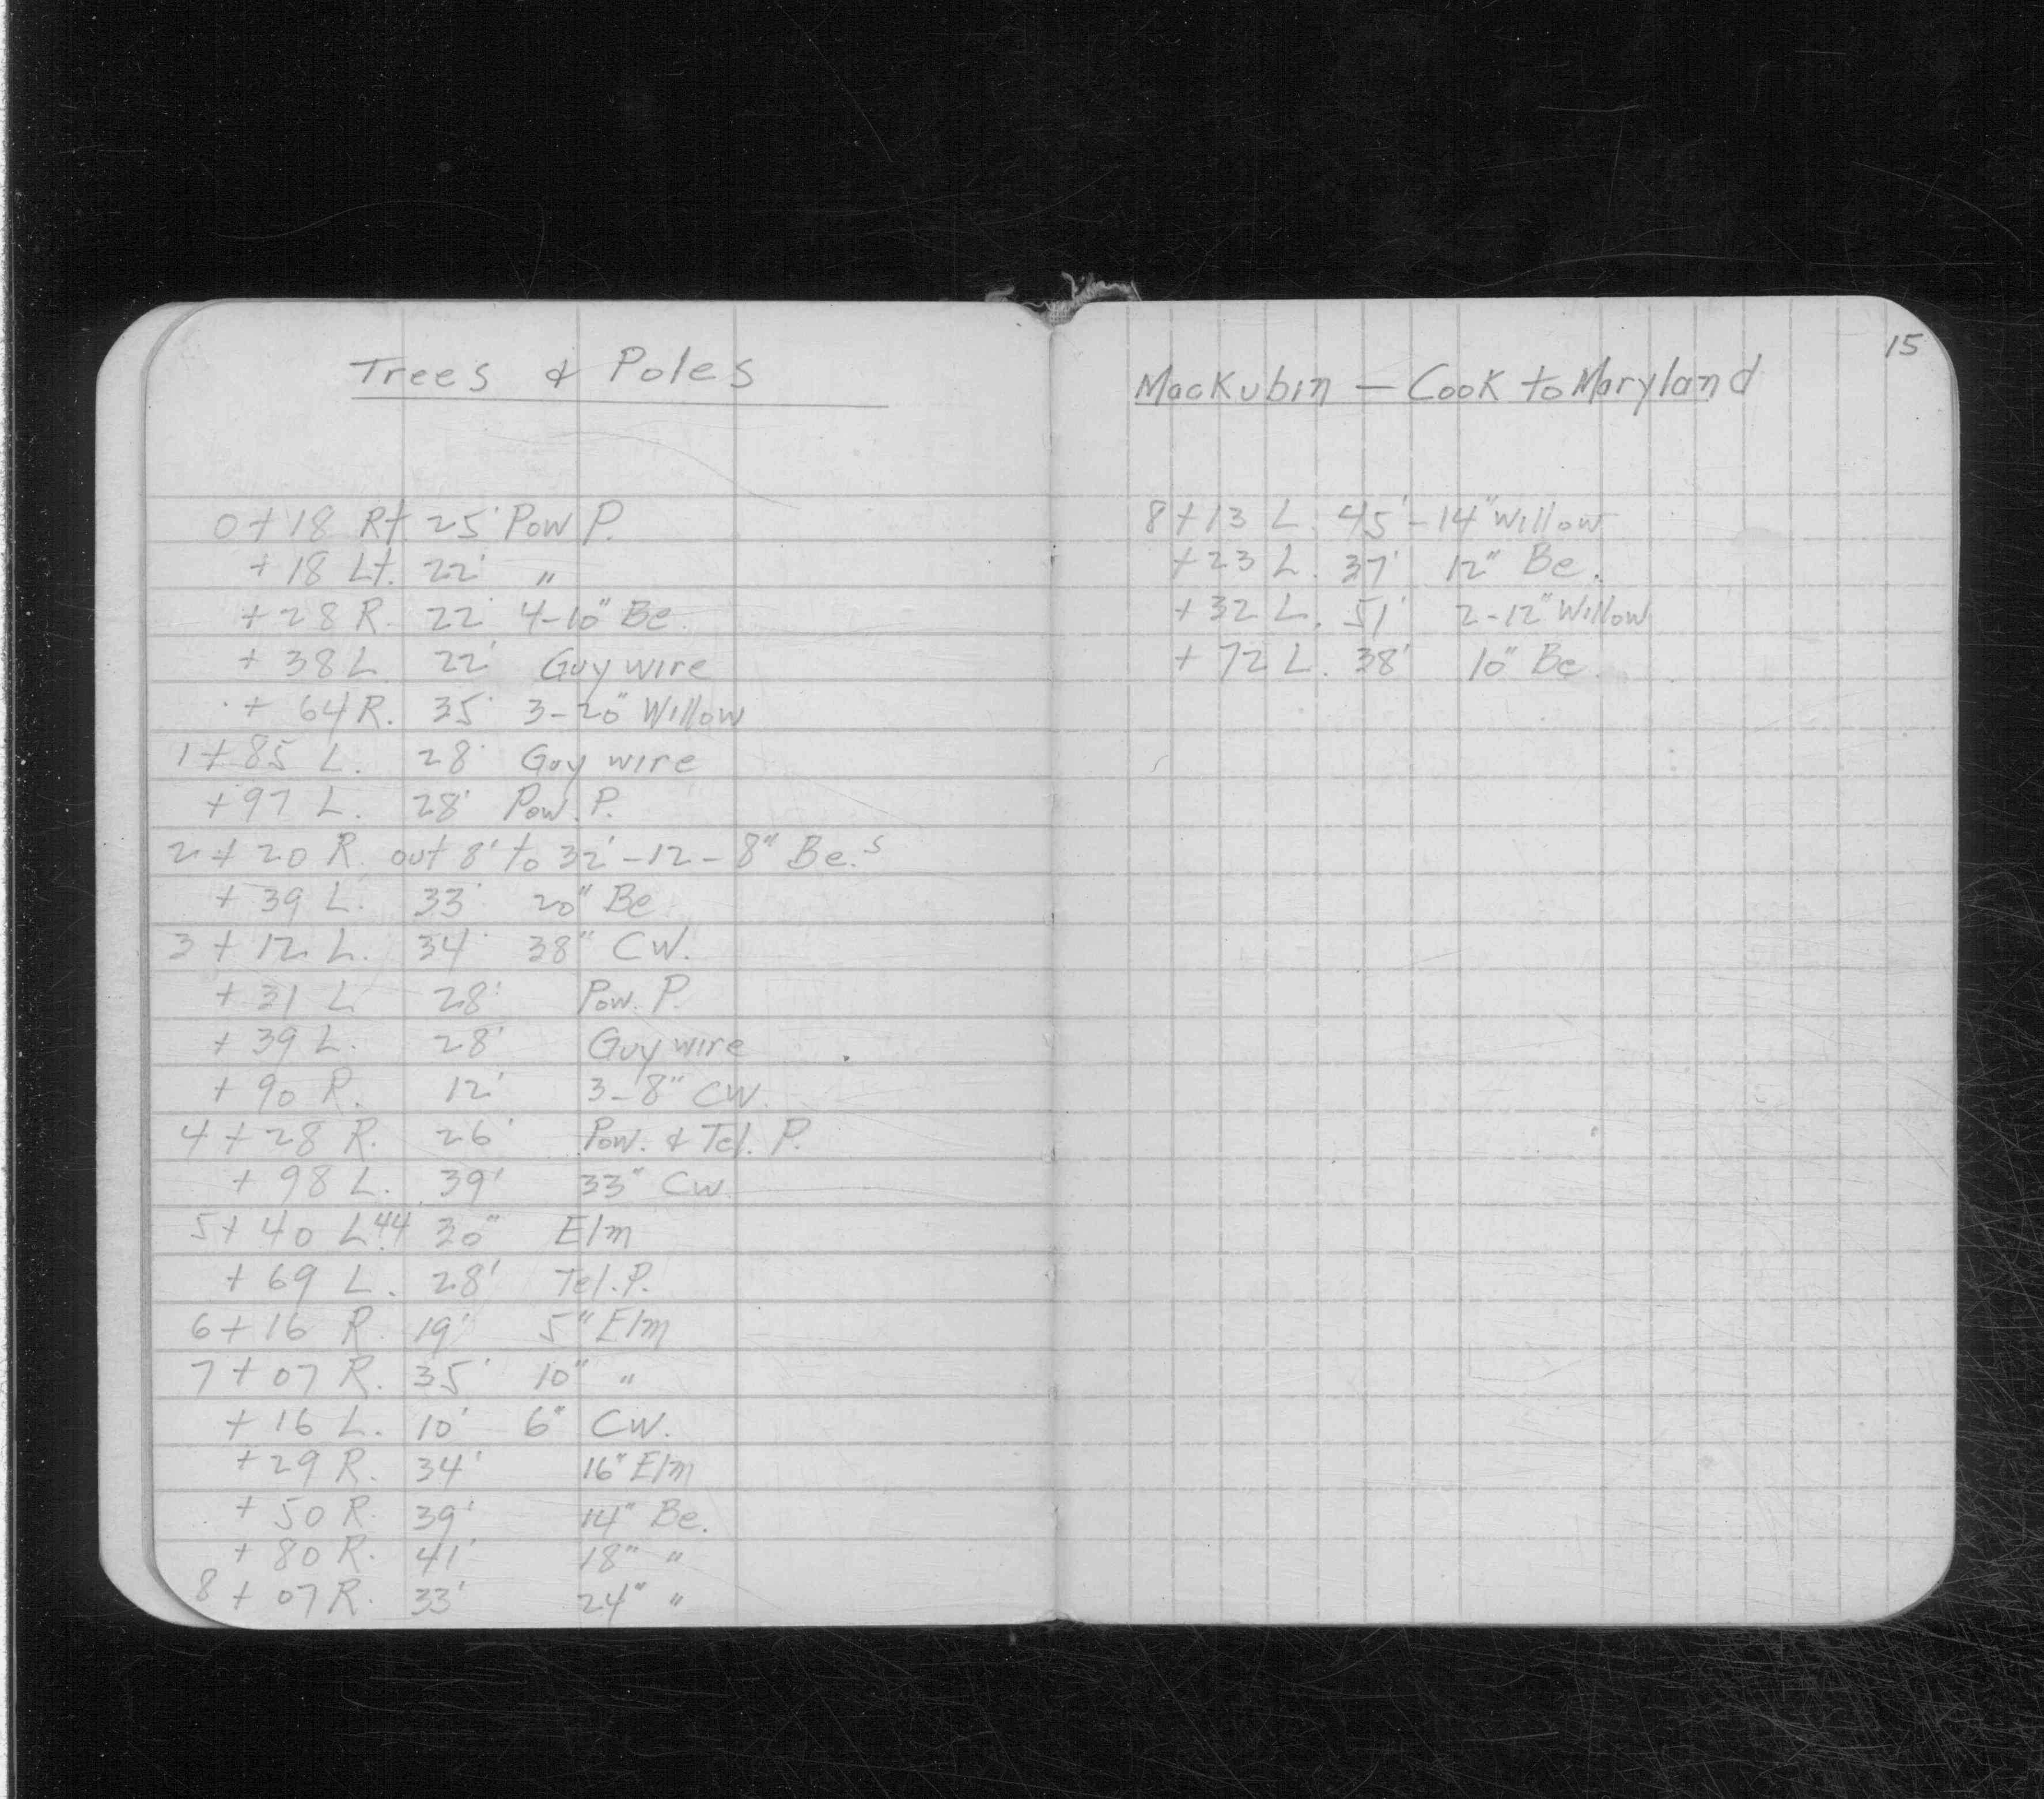 Trees & Poles
0+18 Rt. 25' Pow P.
+18 Lt. 22' "
+28 R. 22' 4-10" Be.
+38 L 22' Guy wire
+ 64 R. 35' 3-20" Willow
1+85 L. 28' Guy wire
+97 L. 28' Pow. P.
2+20 R. out 8' to 32' -12- 8" Be.s
+ 39 L. 33' 20" Be
3+12 L. 34' 38" CW.
+31 L 28' Pow. P.
+39 L. 28' Guy wire
+90 R. 12' 3-8" CW.
4+28 R. 26' Pow. & Tel. P.
+98 L. 39' 33" CW
5+40 L. 44 30" Elm
+69 L. 28' Tel. P.
6+16 R. 19' 5" Elm
7+07 R. 35' 10" "
+16 L. 10' 6" CW.
+29 R. 34' 16" Elm
+50 R. 39' 14" Be.
+80 R. 41' 18" "
8+07 R. 33' 24" "
15
Mackubin — Cook to Maryland
8+13 L. 45' - 14" Willow
+23 L. 37' 12" Be.
+32 L. 51' 2-12" Willow
+72 L. 38' 10" Be.